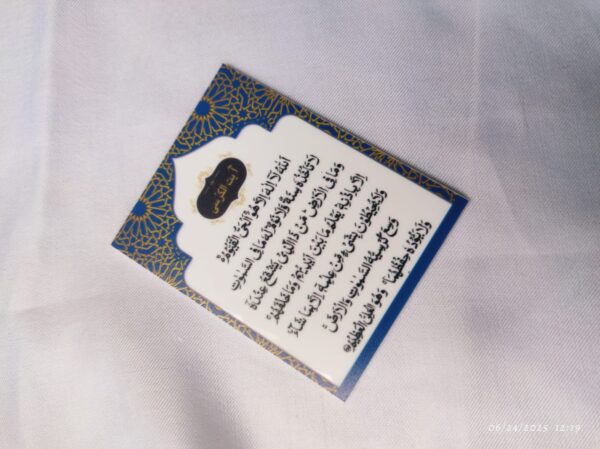 آية الكرسي
اَللّٰهُ لَآ اِلٰهَ اِلَّا هُوَ اَلْحَيُّ الْقَيُّوْمُ
لَا تَاْخُذُهٗ سِنَةٌ وَّلَا نَوْمٌ لَهٗ مَا فِي السَّمٰوٰتِ
وَمَا فِي الْاَرْضِ مَنْ ذَا الَّذِيْ يَشْفَعُ عِنْدَهٗٓ
اِلَّا بِاِذْنِهٖ يَعْلَمُ مَا بَيْنَ اَيْدِيْهِمْ وَمَا خَلْفَهُمْ
وَلَا يُحِيْطُوْنَ بِشَيْءٍ مِّنْ عِلْمِهٖٓ اِلَّا بِمَا شَآءَ
وَسِعَ كُرْسِيُّهُ السَّمٰوٰتِ وَالْاَرْضَ
وَلَا يَـُٔوْدُهٗ حِفْظُهُمَا وَهُوَ الْعَلِيُّ الْعَظِيْمُ
06/24/2025 12:19